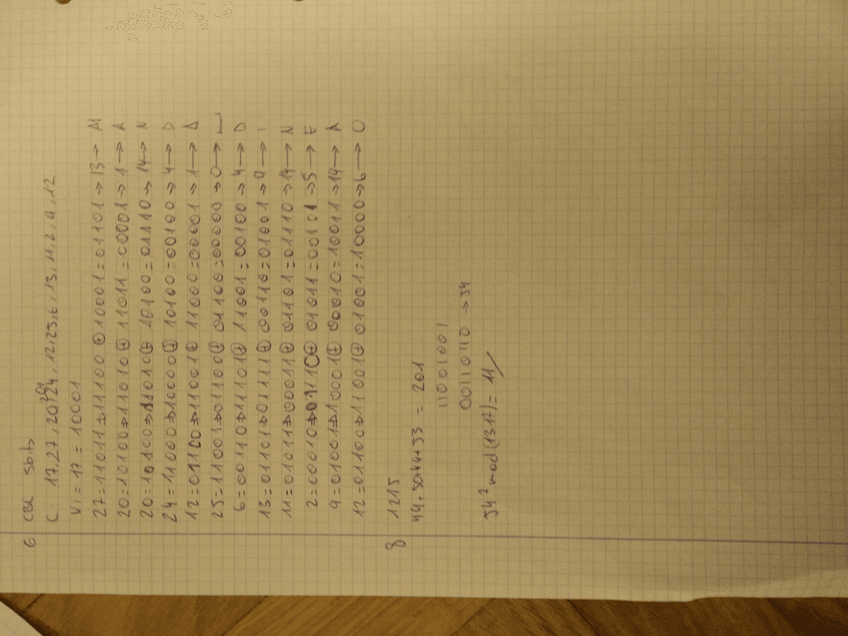 6 CBC 5bitb
C: 17, 27, 20, 20, 24, 12, 25, 6, 13, 11, 2, 9, 12
Vi = 17 = 10001
27=11011→11100⊕10001=01101→13→M
20=10100→11010⊕11011=00001→1→A
20=10100→11010⊕10100=01110→14→N
24=11000→10000⊕10100=00100→4→D
12=01100→11001⊕11000=00001→1→A
25=11001→01100⊕01100=00000→0→
6=00110→11101⊕11001=00100→4→D
13=01101→01111⊕00110=01001→9→I
11=01011→00011⊕01101=01110→14→N
2=00010→01110⊕01011=00101→5→E
9=01001→10001⊕00010=10011→19→A
12=01100→11001⊕01001=10000→6→O
8 1215
49.50+4+33 = 201
11001001
00110110→54
54² mod(1317)= 11